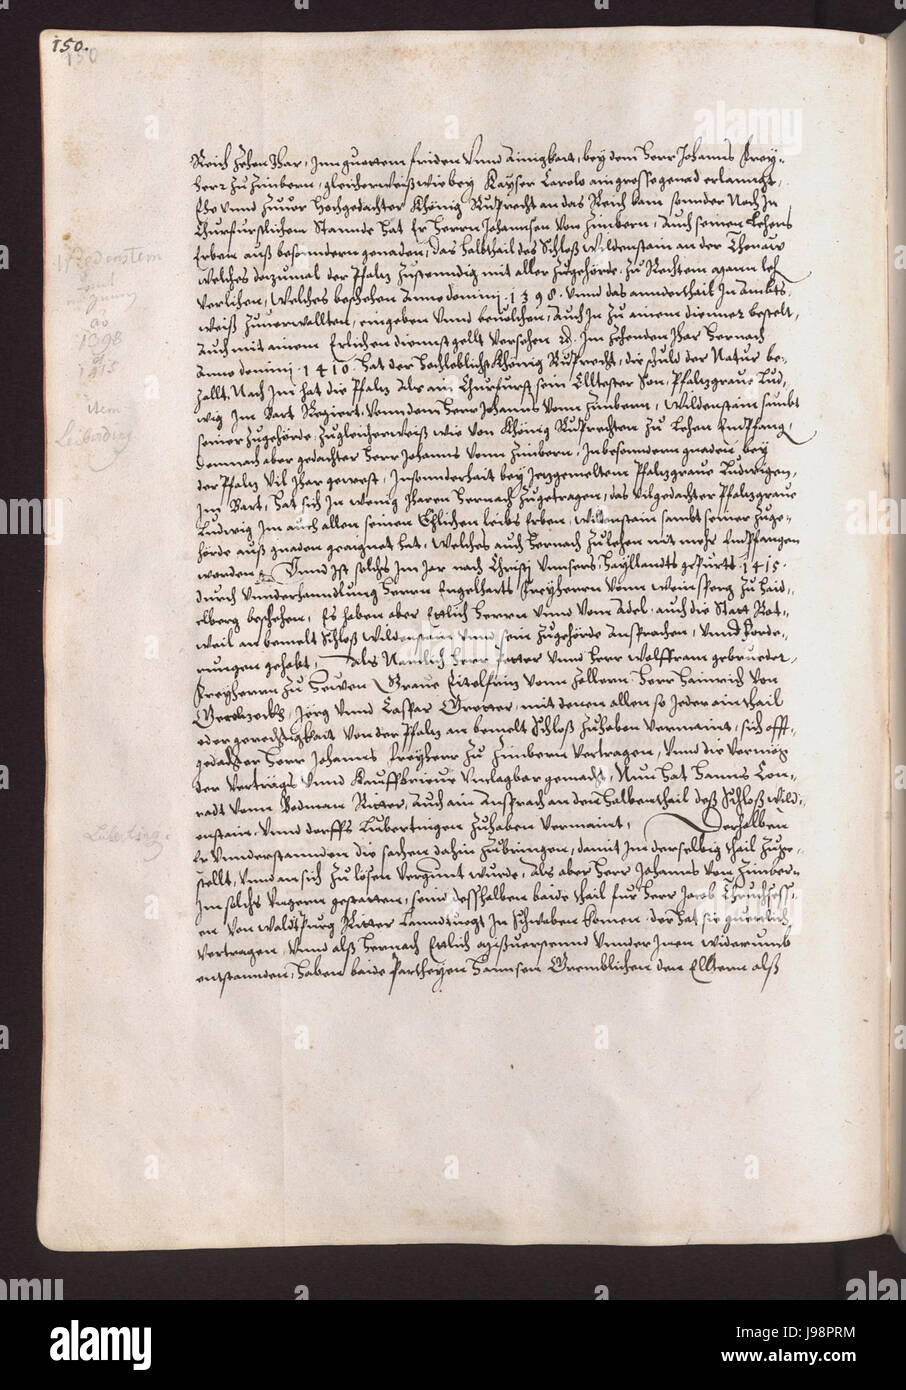 150.
150
Reich Zehen Jhar, Inn guettem friden unnd Ainigkait, bey dem Herr Johanns Frey-
herr zu Zimbern, gleicherweiß wie bey Kayser Carolo ain grosse genad erlanngt,
Ehe unnd Zuvor hochgedachter Khönig Ruprecht an das Reich kam sonnder noch In
Churfürstlichem Stannde hat Er Herrn Johannsen von Zimbern, Auch seinen Lehens
Erben auß besonndern genaden, das halbthail des Schloß Wildenstain an der Thonaw
welches dozumal der Pfalz Zustenndig mit aller Zugehörde, zu Rechtem
verlihen, Welches beschehen Anno domini 1398. unnd das annderthail In Ambts
weiß Zuverwallten, eingeben unnd bevolchen, Auch In zu ainem dienner bestelt,
Auch mit ainem Erlichen dienstgellt versehen Im Zehenden Jhar hernach
Anno domini 1410. hat der hochloblichst Khönig Ruprecht, die schuld der Natur be-
zallt. Nach Im hat die Pfalz Als ain Churfürst sein Elltester Son, Pfalzgrave Lud-
wig Im Bart Regiert, Von dem Herr Johanns vonn Zimbern, Wildenstain sambt
seiner Zugehörde, Zugleicherweiß wie von Khönig Ruprechten zu Lehen Empfang,
Demnach aber gedachter Herr Johanns vonn Zimbern, In besonndern gnaden, bey
der Pfalz vil Jhar gewest, Insonnderhait bey Jezgemeltem Pfalzgrave Ludwigen,
Im Bart, hat sich In wenig Jharen hernach Zugetragen, das vilgedachter Pfalzgrave
Ludwig Im auch allen seinen Ehlichen leibs Erben, Wildenstain sambt seiner Zuge-
hörde auß gnaden geaignet hat, welches auch hernach zu lehen nit mehr Empfangen
worden, Unnd Ist solchs Im Jar nach Christj unnsers Hayllandts gepurts 1415.
durch unnderhandlung Herrn Engelharts Freyherrn vonn Weinsperg zu Haid-
elberg beschehen, Es haben aber Ettlich Herrn unnd vom Adel, auch die Statt Rot-
weil an bemelt Schloß Wildenstain unnd sein Zugehörde Ansprachen, unnd Forde-
rungen gehabt, Als Namlich Herr Petter unnd Herr Wolffram gebrueder,
Freyherrn zu Hewen Grave Eitelfriz vonn Zollern Herr Hainrich von
Geroltzeckh, Jörg unnd Caspar Gremer, mit denen allen so Jeder ein thail
oder gerechtigkait von der Pfalz an bemelt Schloß Zuhaben vermaint, sich offt-
gedachter Herr Johanns Freyherr zu Zimbern vertragen, unnd die vermög
der verträgs unnd Kauffbrieve unclagbar gemacht, Nun hat Hanns Con-
radt vonn Bodman Ritter, Auch ain Ansprach an den halbenthail deß Schloß Wild-
enstain, unnd dorffs Lübertingen Zuhaben vermaint, Derhalben
Er unnderstannden die sachen dahin zubringen, damit Im derselbig thail Zuge-
stellt, unnd an sich zu lösen vergunt wurde, Als aber Herr Johanns von Zimber-
Im solchs ungern gestatten, seind desshalben baide thail für Herr Jacob Truchsess-
en von Waldtpurg Ritter Lanndtvogt In Schwaben komen, der hat sie guetlich
vertragen, unnd alß hernach Ettlich unnder Inen widerumb
entstannden, haben baide Partheyen Hannsen Gremblichen den Elltern alß
Wildenstein
ao
1398
1415
item
Leibertingen